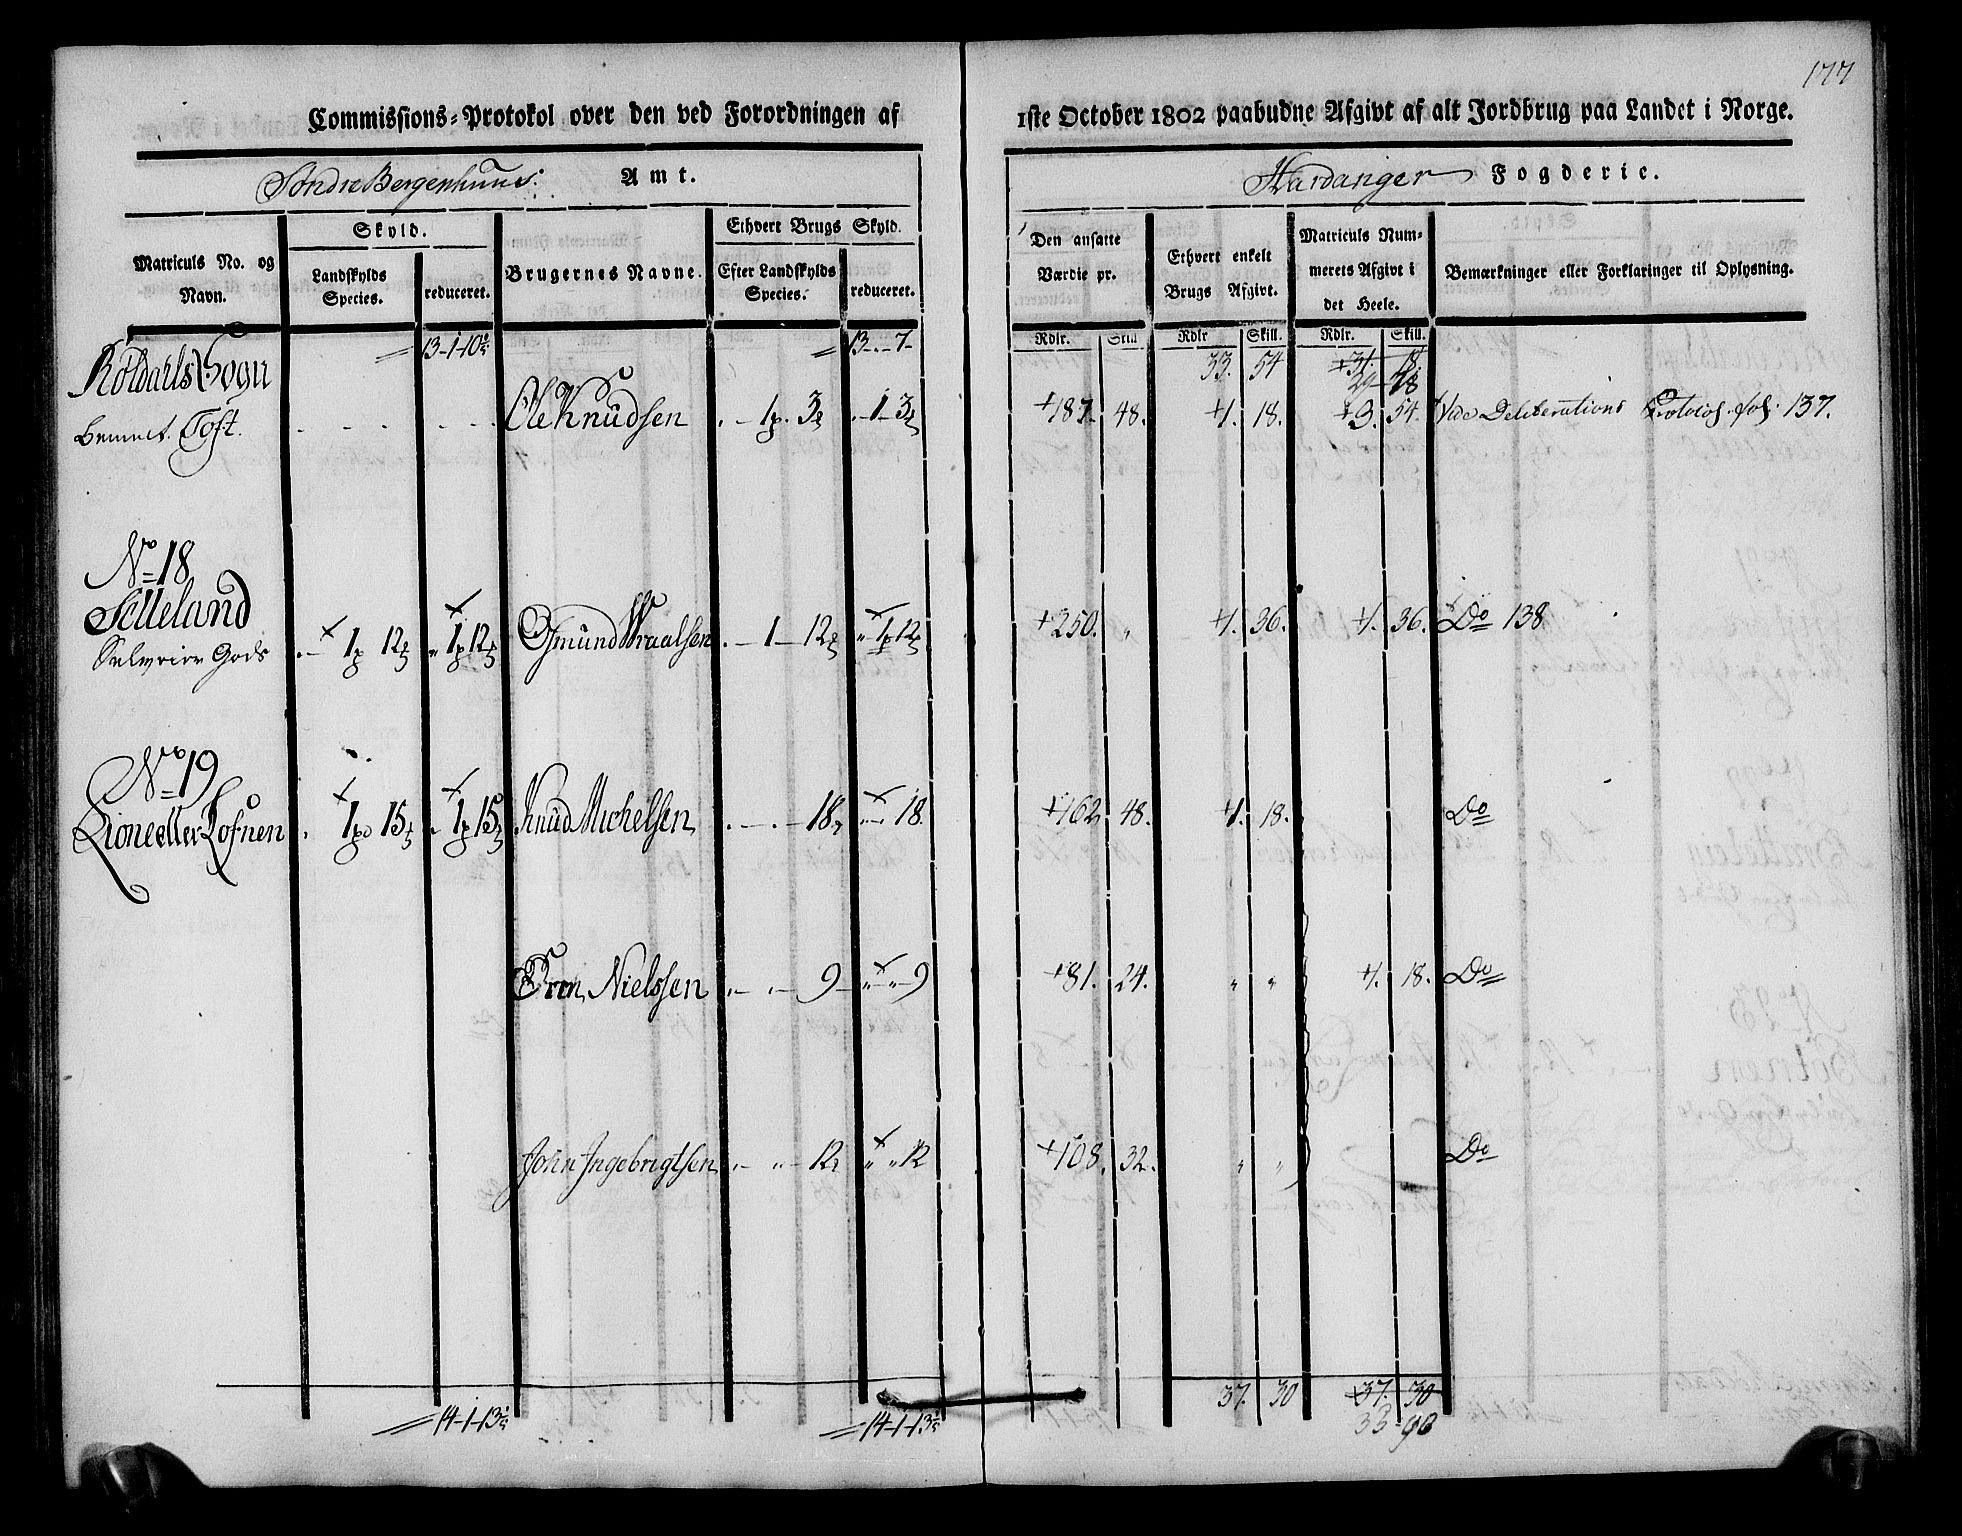 177
Commissions-Protokol over den ved Forordningen af 1ste October 1802 paabudne Afgivt af alt Jordbrug paa Landet i Norge.
Søndre Bergenhuus: Amt.
Hardanger Fogderie.
Matriculs No. og Navn.
Skyld.
Landskylds Species.
reduceret.
Brugernes Navne.
Ethvert Brugs Skyld.
Efter Landskylds Species.
reduceret.
Den ansatte Værdie pr.
Ethvert enkelt Brugs Afgivt.
Matriculs Nummerets Afgivt i det Heele.
Bemærkninger eller Forklaringer til Oplysning.
Rdlr. Skill Rdlr Skill. Rdlr. Skill.
13-1-10½ 13-.-7- 33. 54 31. 18
29 18
Røldahls Sogn
benevnt. Toft. Ole Knudsen 1p. 3 1-3 187. 48. 1. 18. 3. 54. Vide Deliberations Protocol fol: 137.
No 18
Selleland
Selveier Gods 1p 12 1p 12 Osmund Wraalsen 1-12 1p 12 250. " 1. 36. 1. 36. Do 138
No 19
Lione eller Lofnen 1p 15 1p 15 Knud Michelsen 18 18. 162 48. 1. 18. Do
Orm Nielssen 9 9 81. 24. " " 1. 18. Do
John Ingebrigtsen 12 12 108. 32. " " Do
14-1-13½ 14-1-13½ 37. 30 37. 30
33-90